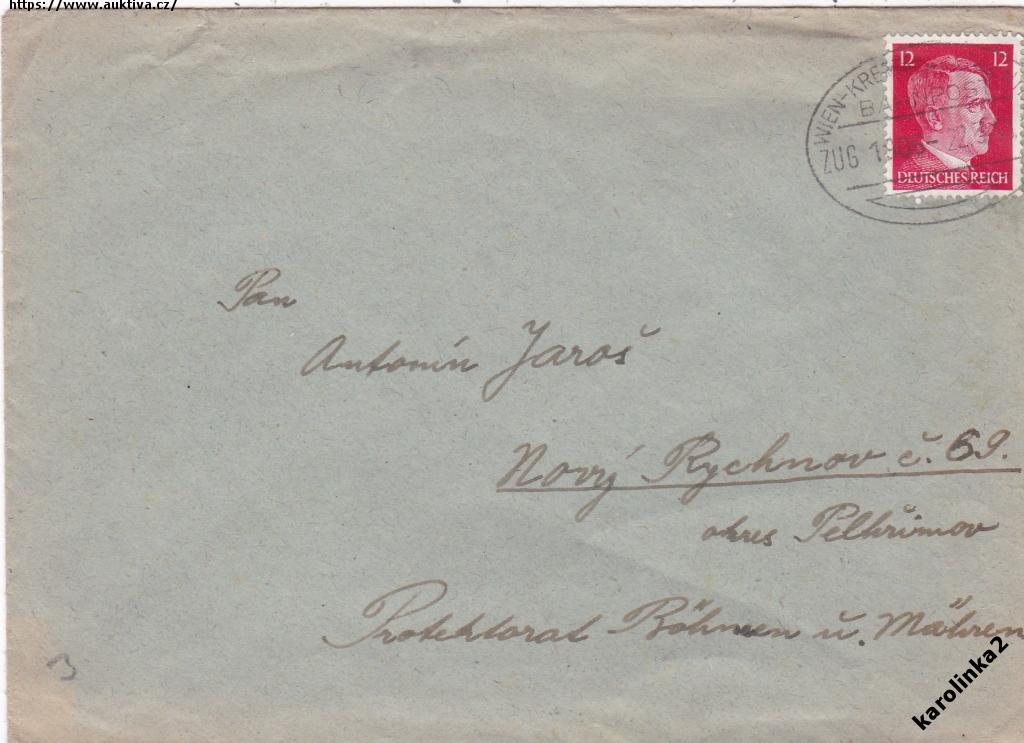 https://www.auktiva.cz/
12 12
WIEN-KRE
BAHNPOST
ZUG 1
DEUTSCHES REICH
Pan
Antonín Jaroš
Nový Rychnov č. 69.
okres Pelhřimov
Protektorat Böhmen u. Mähren
3
karolinka2